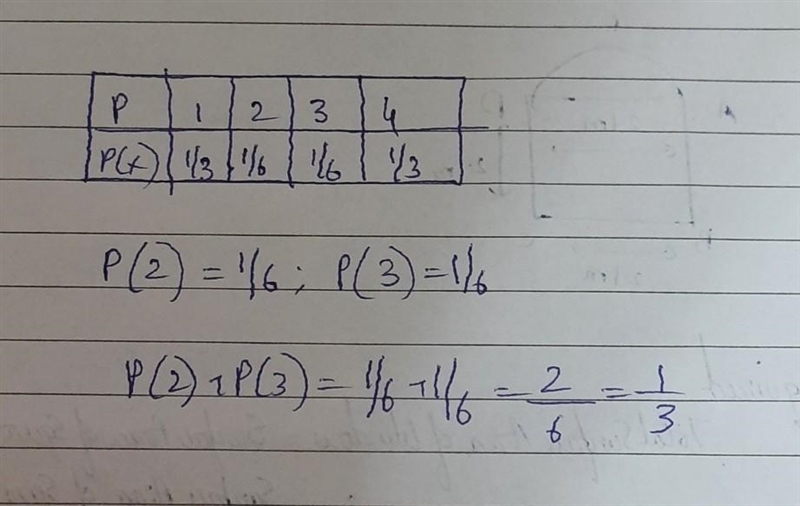 P 1 2 3 4
P(x) 1/3 1/6 1/6 1/3
P(2) = 1/6 ; P(3) = 1/6
P(2) + P(3) = 1/6 + 1/6 = 2/6 = 1/3